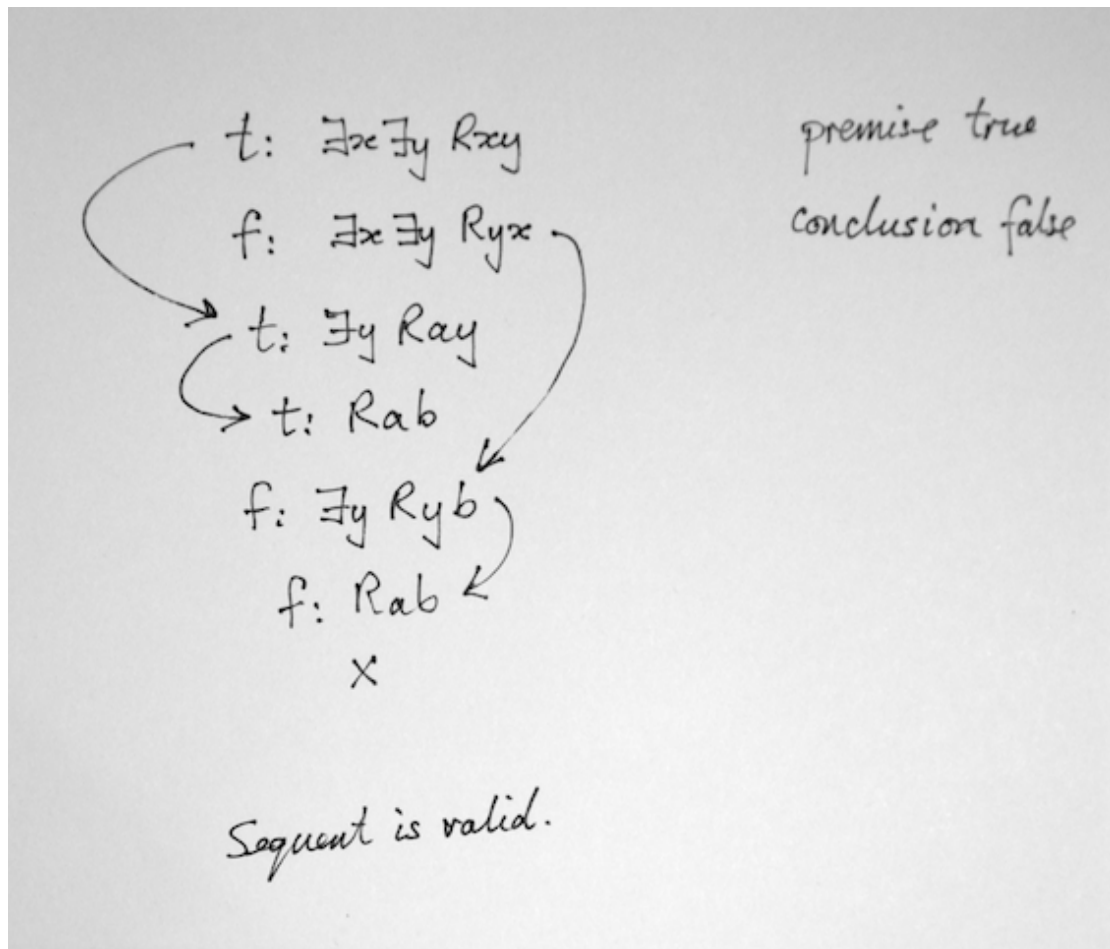 t: ∃x ∃y Rxy premise true
f: ∃x ∃y Ryx conclusion false
t: ∃y Ray
t: Rab
f: ∃y Ryb
f: Rab
X
Sequent is valid.